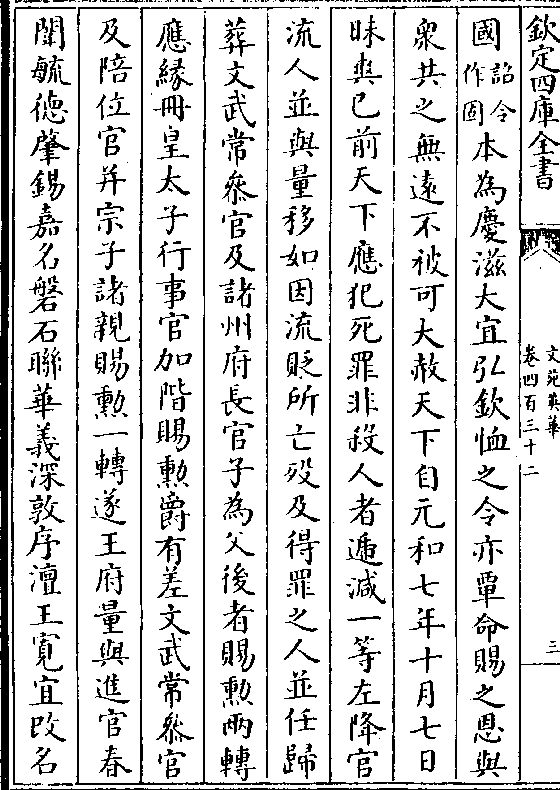 欽定四庫全書
文苑英華
卷四百三十二
三
國詔令作固本為慶滋大宜弘欽恤之令亦覃命賜之恩與
衆共之無遠不被可大赦天下自元和七年十月七日
昧爽已前天下應犯死罪非殺人者遞減一等左降官
流人並與量移如因流貶所亡歿及得罪之人並任歸
葬文武常叅官及諸州府長官子為父後者賜勲兩轉
應縁冊皇太子行事官加階賜勲爵有差文武常叅官
及陪位官并宗子諸親賜勲一轉遂王府量與進官春
闈毓德肇錫嘉名磐石聯華義深敦序澶王寛宜改名